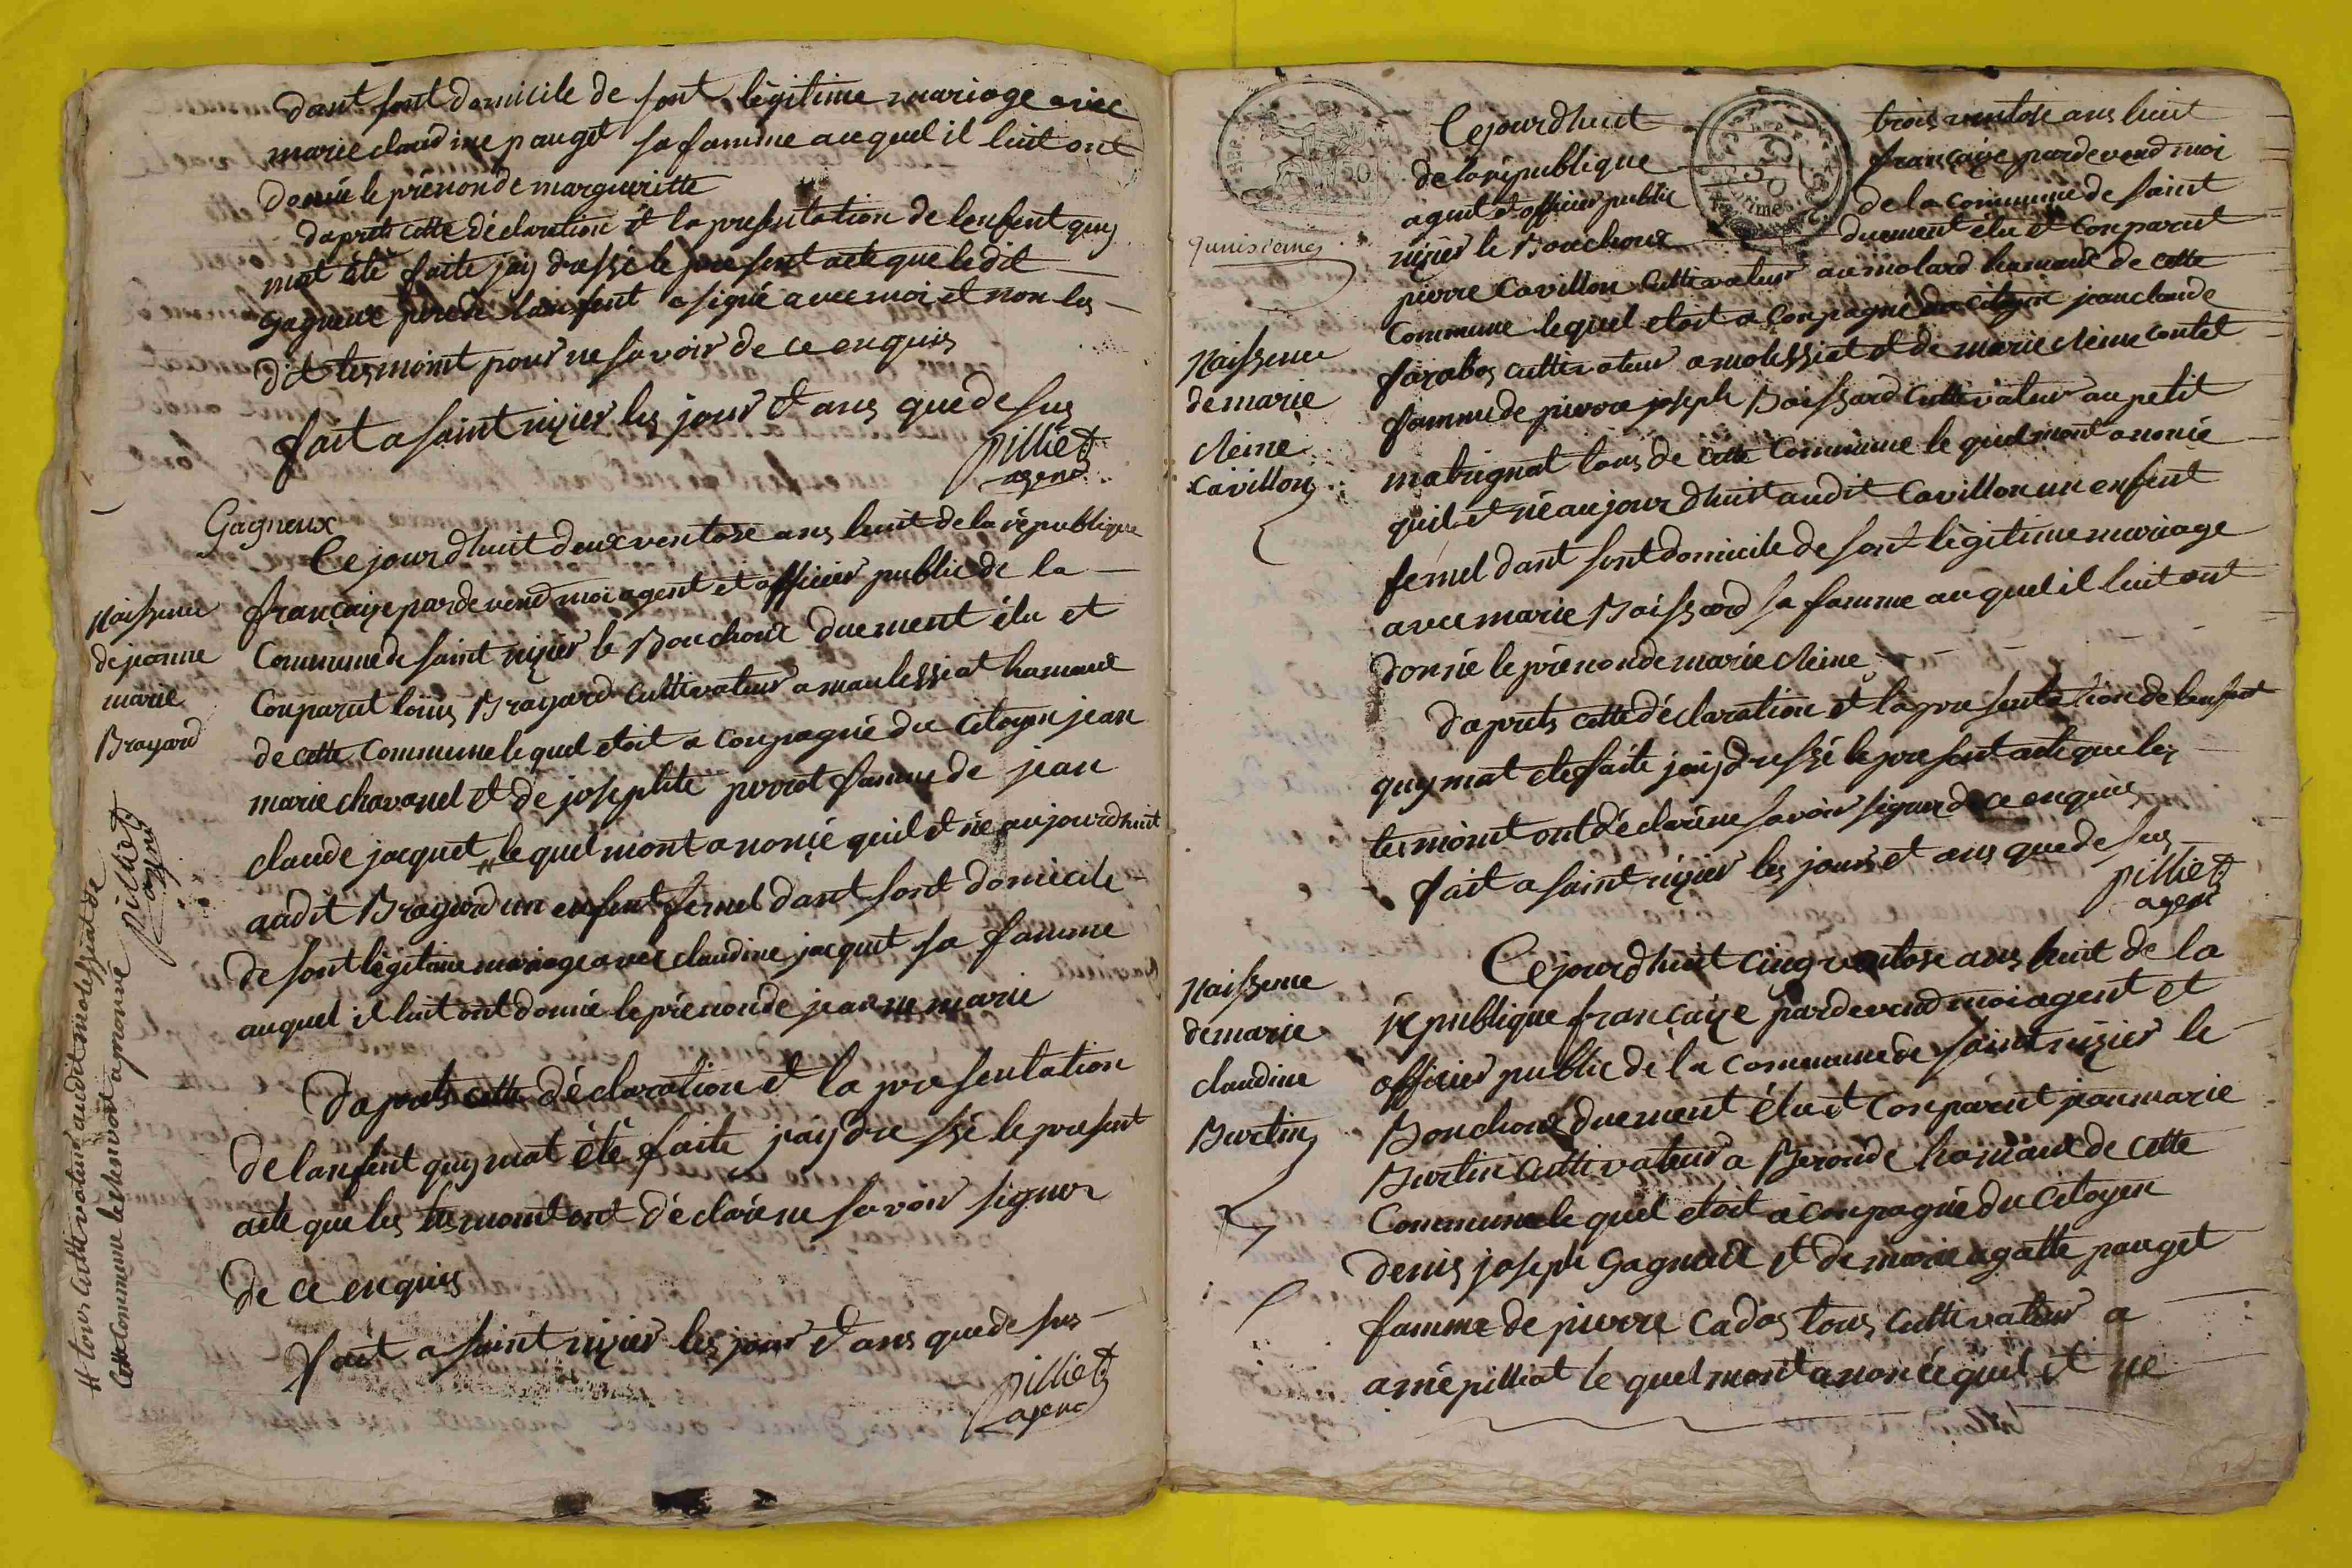 dant sont domicile de sont légitime mariage avec
marie claudine pauget sa famme auquel il luit ont
donnée le prénon de margueritte
daprets cette déclaration et la presentation de lenfent quy
mat été faite jaiy dressé le present acte que le dit
gagneux pere de lanfent a signé avec moi et non les
dit tesmoint pour ne savoir de ce enquis
fait a saint nizier les jour et ans que de sus
pilliet
agend
Gagneux
Naissence
de jeanne
marie
Brayard
Ce jour dhuit deux ventose ans huit de la république
françaize pardevend moi agent et officier public de la
Commune de saint nizier le Bouchoux duement élu et
Conparut louis Brayard cultivateur a maulessiat hamaux
de cette Commune le quel etoit a conpagné du Citoyen jean
marie chavanel et de josephte perrot famme de jean
claude jacquet # le quel mont anoncé quil et né aujourdhuit
audit Brayard un enfent femel dant sont domicile
de sont légitime mariage avec claudine jacquet sa famme
auquel il luit ont donnée le prénon de jeanne marie
Daprets cette déclaration et la presentation
de lanfent quy mat été faite jaiy dressé le present
acte que les tesmoint ont déclaré ne savoir signer
de ce enquis
fait a saint nizier les jour et ans que de sus
pilliet
agend
# tous cultivateur audit molessiat de
Cette Commune les renvoit aprouvé
pilliet
agend
qunisiemes
Ce jourdhuit trois ventose ans huit
de la république françaize pardevend moi
agent et officier public de la commune de saint
nizier le Bouchoux duement élu et Conparut
pierre Cavillon cultivateur au molard hamaux de cette
Commune lequel etoit a Conpagné du citoyen jean claude
farabos cultivateur a molessiat et de marie cleine contet
famme de pierre joseph Boissard cultivateur au petit
matrignat tous de cette Commune le quel mont anoncé
quil et né aujour dhuit audit Cavillon un enfent
femel dant sont domicile de sont légitime mariage
avec marie Boissard sa famme auquel il luit ont
donnée le prénon de marie cleine
Naissence
de marie
cleine
Cavillon
daprets cette déclaration et la presentation de lenfent
quy mat ete faite jaiy dressé le present acte que les
tesmoint ont déclaré ne savoir signer de ce enquis
fait a saint nizier les jours et ans que de sus
pilliet
agent
Naissence
de marie
claudine
Burtin
Ce jourdhuit cinq ventose ans huit de la
république françaize pardevend moi agent et
officier public de la commune de saint nizier le
Bouchoux duement élu et Conparut jean marie
Burtin cultivateur a Beronde hamaux de cette
Commune le quel etoit a conpagnée du citoyen
denis joseph Gagneux et de marie agatte pauget
famme de pierre Cados tous cultivateur a
a mépilliat le quel mont anoncé quil et né